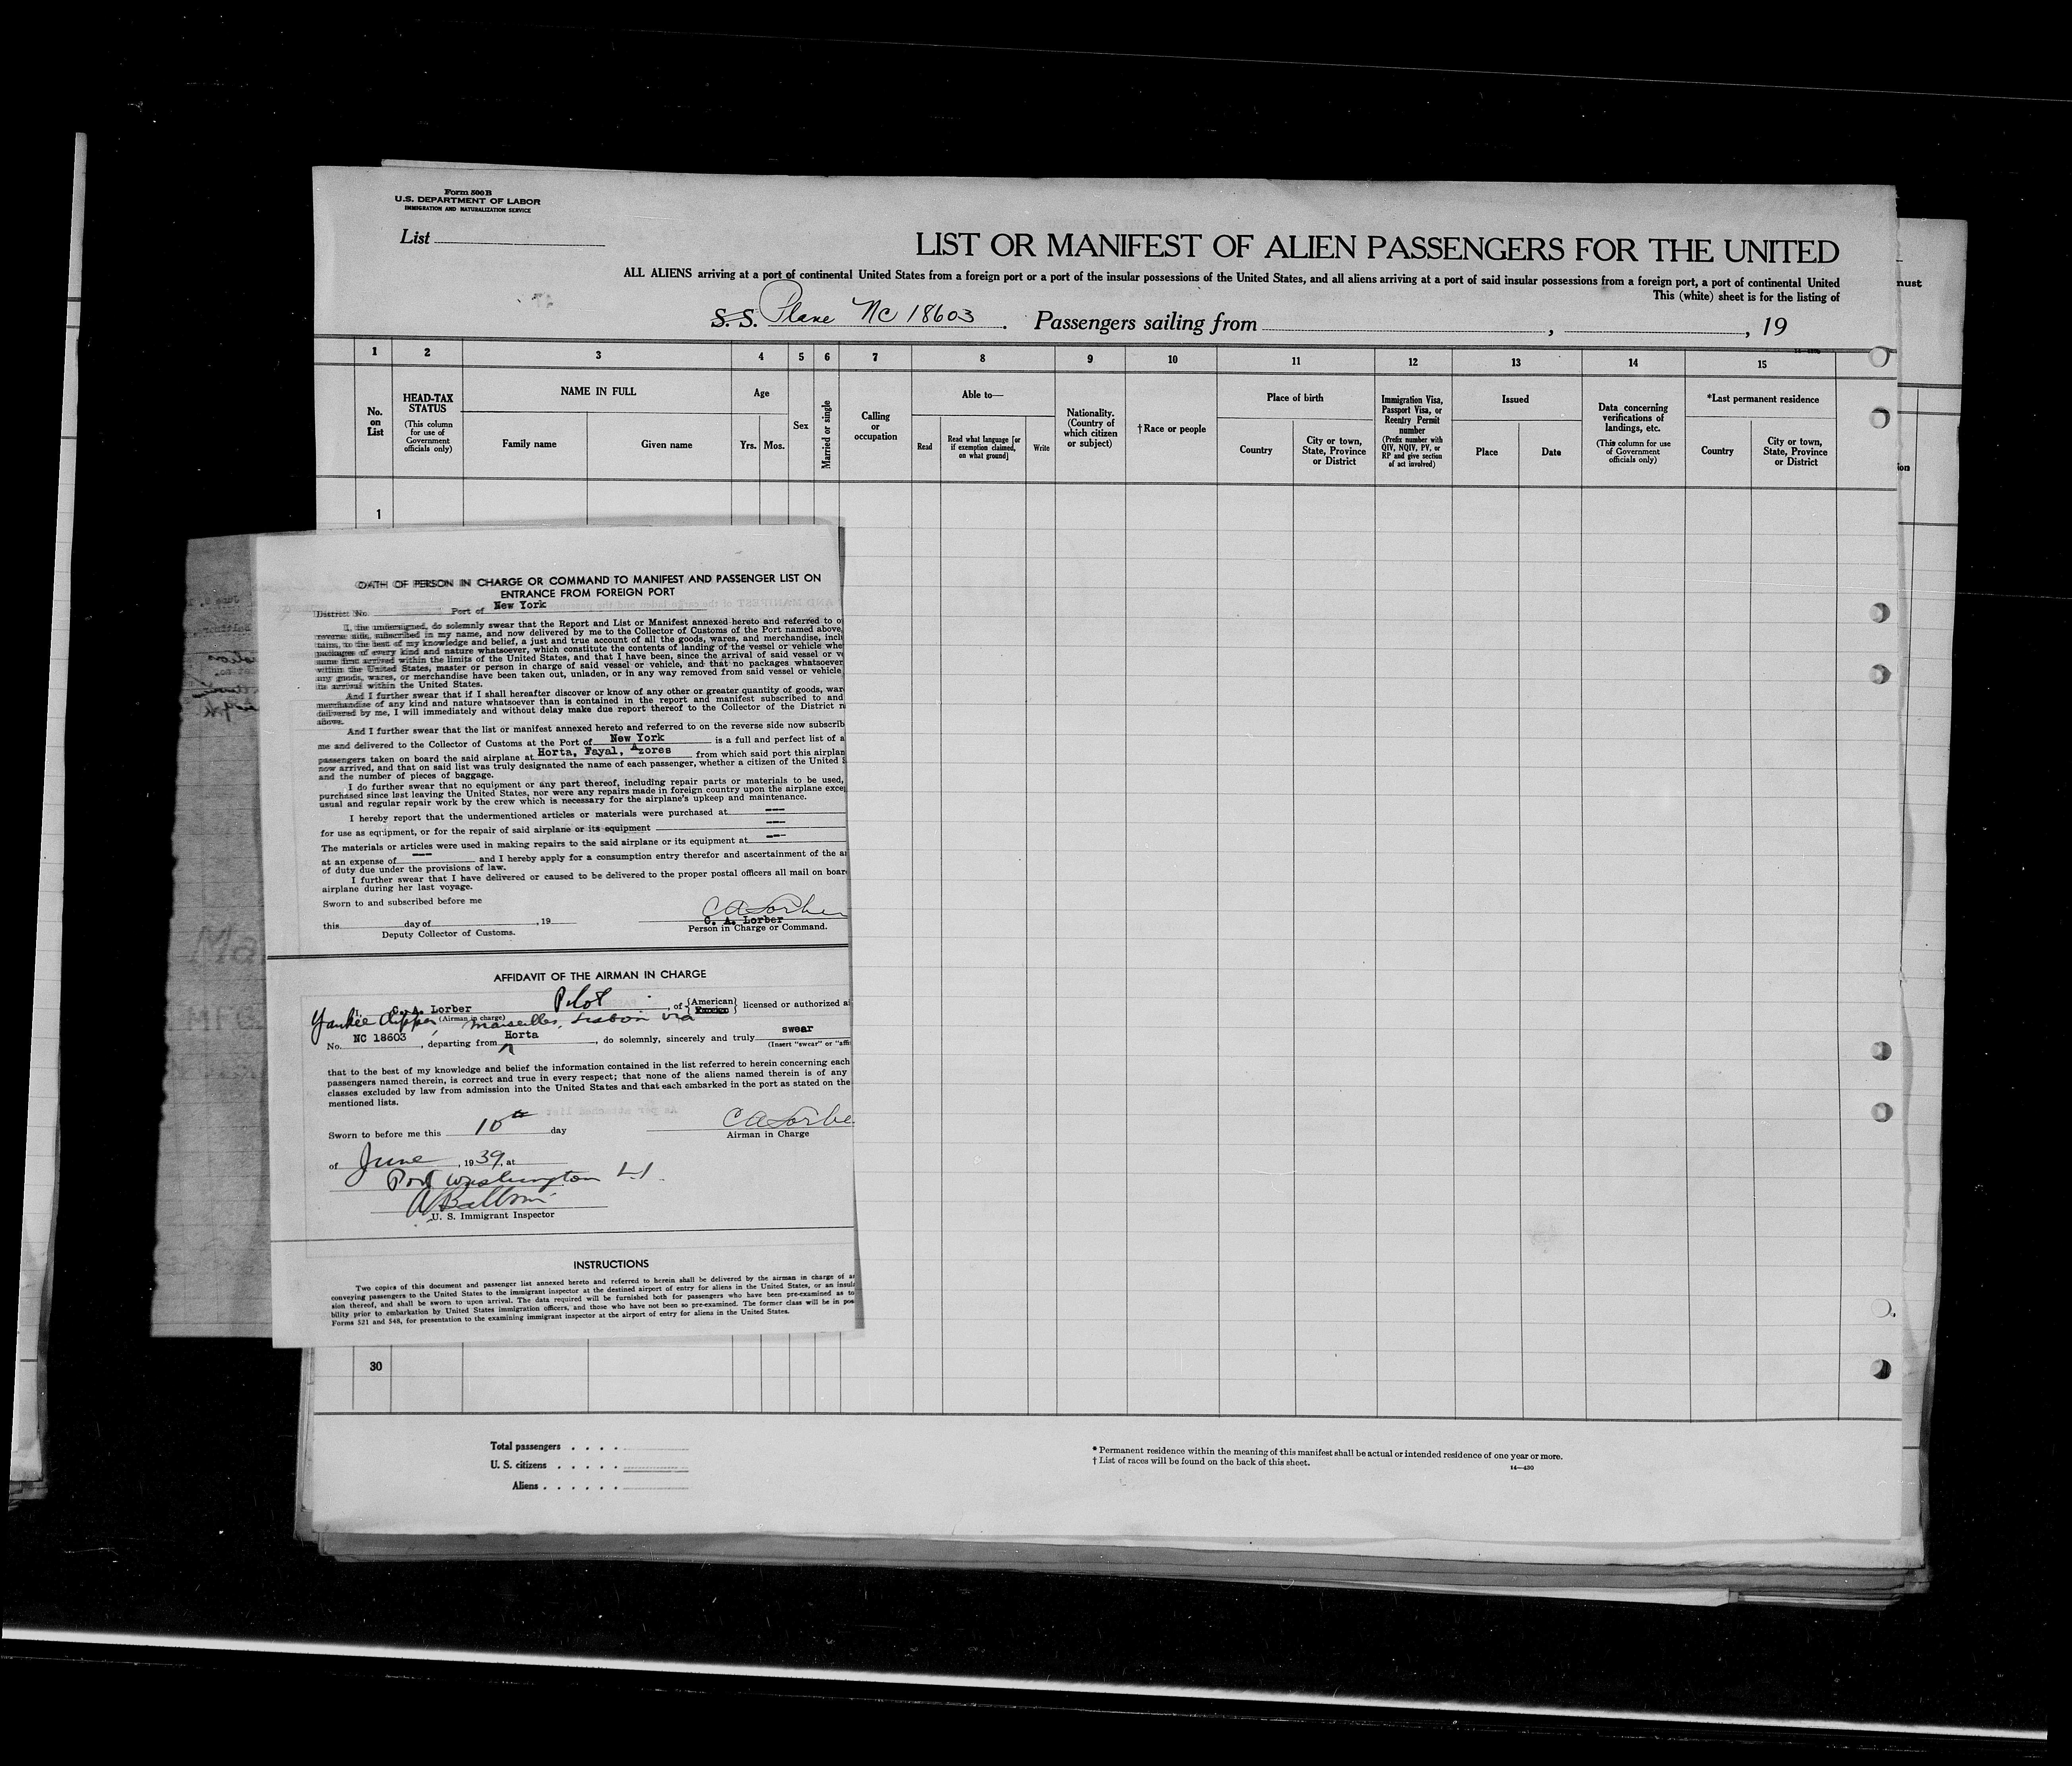 Form 500 B
U.S. DEPARTMENT OF LABOR
IMMIGRATION AND NATURALIZATION SERVICE
List
LIST OR MANIFEST OF ALIEN PASSENGERS FOR THE UNITED
ALL ALIENS arriving at a port of continental United States from a foreign port or a port of the insular possessions of the United States, and all aliens arriving at a port of said insular possessions from a foreign port, a port of continental United
This (white) sheet is for the listing of
nust
S. S. Plane NC 18603 . Passengers sailing from , , 19
1 2 3 4 5 6 7 8 9 10 11 12 13 14 15
No. on List
HEAD-TAX STATUS
(This column for use of Government officials only)
NAME IN FULL
Family name Given name
Age
Yrs. Mos.
Sex
Married or single
Calling or occupation
Able to—
Read
Read what language [or if exemption claimed, on what ground]
Write
Nationality. (Country of which citizen or subject)
†Race or people
Place of birth
Country
City or town, State, Province or District
Immigration Visa, Passport Visa, or Reentry Permit number
(Prefix number with QIV, NQIV, PV, or RP and give section of act involved)
Issued
Place Date
Data concerning verifications of landings, etc.
(This column for use of Government officials only)
*Last permanent residence
Country
City or town, State, Province or District
ion
1
OATH OF PERSON IN CHARGE OR COMMAND TO MANIFEST AND PASSENGER LIST ON
ENTRANCE FROM FOREIGN PORT
District No. Port of New York
I, the undersigned, do solemnly swear that the Report and List or Manifest annexed hereto and referred to o
reverse side, subscribed in my name, and now delivered by me to the Collector of Customs of the Port named above,
tains, to the best of my knowledge and belief, a just and true account of all the goods, wares, and merchandise, incl
packages of every kind and nature whatsoever, which constitute the contents of landing of the vessel or vehicle whe
same first arrived within the limits of the United States, and that I have been, since the arrival of said vessel or v
within the United States, master or person in charge of said vessel or vehicle, and that no packages whatsoever
any goods, wares, or merchandise have been taken out, unladen, or in any way removed from said vessel or vehicle
its arrival within the United States.
And I further swear that if I shall hereafter discover or know of any other or greater quantity of goods, war
merchandise of any kind and nature whatsoever than is contained in the report and manifest subscribed to and
delivered by me, I will immediately and without delay make due report thereof to the Collector of the District n
above.
And I further swear that the list or manifest annexed hereto and referred to on the reverse side now subscrib
me and delivered to the Collector of Customs at the Port of New York is a full and perfect list of a
passengers taken on board the said airplane at Horta, Fayal, Azores from which said port this airplan
now arrived, and that on said list was truly designated the name of each passenger, whether a citizen of the United S
and the number of pieces of baggage.
I do further swear that no equipment or any part thereof, including repair parts or materials to be used,
purchased since last leaving the United States, nor were any repairs made in foreign country upon the airplane exce
usual and regular repair work by the crew which is necessary for the airplane's upkeep and maintenance.
I hereby report that the undermentioned articles or materials were purchased at ---
for use as equipment, or for the repair of said airplane or its equipment ---
The materials or articles were used in making repairs to the said airplane or its equipment at ---
at an expense of --- and I hereby apply for a consumption entry therefor and ascertainment of the a
of duty due under the provisions of law.
I further swear that I have delivered or caused to be delivered to the proper postal officers all mail on boar
airplane during her last voyage.
Sworn to and subscribed before me
C A Lorber
C. A. Lorber
this day of , 19
Person in Charge or Command.
Deputy Collector of Customs.
AFFIDAVIT OF THE AIRMAN IN CHARGE
I, C. A. Lorber Pilot , of {American} licensed or authorized a
Yankee Clipper, (Airman in charge) Marseilles, Lisbon via
No. NC 18603 , departing from Horta , do solemnly, sincerely and truly swear
(Insert "swear" or "affi
that to the best of my knowledge and belief the information contained in the list referred to herein concerning each
passengers named therein, is correct and true in every respect; that none of the aliens named therein is of any
classes excluded by law from admission into the United States and that each embarked in the port as stated on the
mentioned lists.
Sworn to before me this 10th day
C A Lorbe
Airman in Charge
of June , 1939, at
Port Washington L.I.
U. S. Immigrant Inspector
INSTRUCTIONS
Two copies of this document and passenger list annexed hereto and referred to herein shall be delivered by the airman in charge of a
conveying passengers to the United States to the immigrant inspector at the destined airport of entry for aliens in the United States, or an insula
sion thereof, and shall be sworn to upon arrival. The data required will be furnished both for passengers who have been pre-examined as to
bility prior to embarkation by United States immigration officers, and those who have not been so pre-examined. The former class will be in pos
Forms 521 and 548, for presentation to the examining immigrant inspector at the airport of entry for aliens in the United States.
30
Total passengers . . . .
U. S. citizens . . . . .
Aliens . . . . . .
* Permanent residence within the meaning of this manifest shall be actual or intended residence of one year or more.
† List of races will be found on the back of this sheet.
14—430